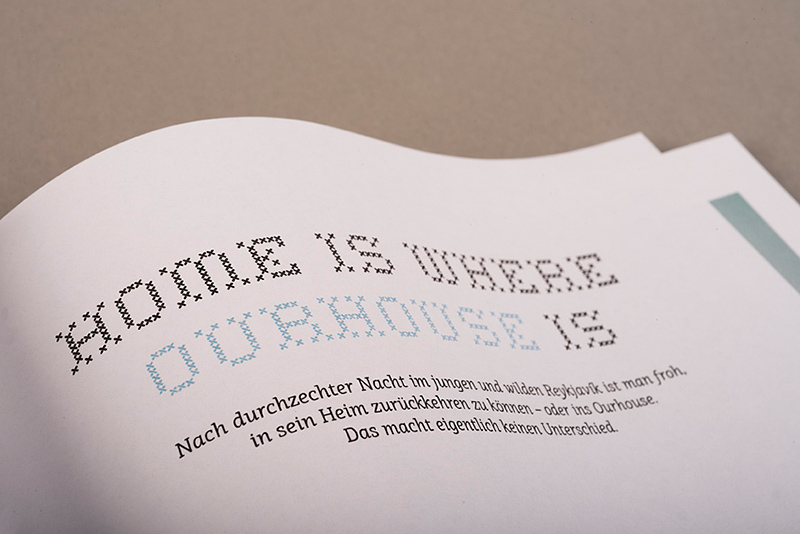 HOME IS WHERE
OURHOUSE IS
Nach durchzechter Nacht im jungen und wilden Reykjavík ist man froh,
in sein Heim zurückkehren zu können – oder ins Ourhouse.
Das macht eigentlich keinen Unterschied.